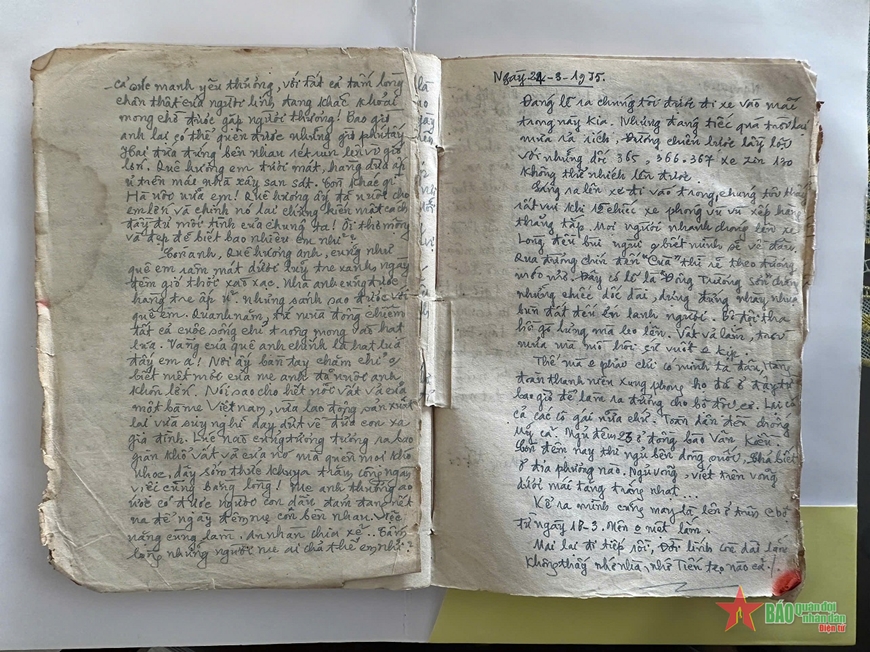 cả sức mạnh yêu thương, với tất cả tấm lòng
chân thật của người lính đang khắc khoải
mong chờ được gặp người thương! Bao giờ
anh lại có thể quên được những giờ phút ấy
Hai đứa đứng bên nhau rét run lên vì gió
lớn. Quê hương em tươi mát, hàng dừa ấp
ủ trên mái nhà xây san sát. Còn khác gì
Hà nội xưa em! Quê hương ấy đã nuôi cho
em lớn và chính nó lại chứng kiến một cách
đầy đủ mối tình của chúng ta! Ôi thơ mộng
và đẹp đẽ biết bao nhiêu em nhỉ?
Còn anh, Quê hương anh, cũng như
quê em râm mát dưới luỹ tre xanh, ngày
đêm gió thổi xào xạc. Nhà anh cũng được
hàng tre ấp ủ
quê em. Quanh năm, từ mùa đông chiêm
tất cả cuộc sống chỉ trong mong vào hạt
lúa. Vàng của quê anh chính là hạt lúa
đấy em ạ! Nơi ấy bàn tay chăm chỉ 0
biết mệt mỏi của mẹ anh đã nuôi anh
khôn lớn. Nói sao cho hết nỗi vất vả của
một bà mẹ Việt nam, vừa lao động sản xuất
lại vừa suy nghĩ day dứt về đứa con xa
gia đình. Lúc nào cũng tưởng tượng ra bao
gian khổ vất vả của nó mà quên mọi khó
nhọc, dậy sớm thức khuya trăm công ngàn
việc cũng bằng lòng! Mẹ anh thường ao
ước có được người con dâu đảm đang nết
na để ngày đêm mẹ con bên nhau. Việc
nặng cùng làm. Ân nhàn chia xẻ... Tấm
lòng những người mẹ ai chả thế em nhỉ?
Ngày 24-3-1975.
Đáng lẽ ra chúng tôi được đi xe vào mãi
trong này kia. Nhưng đáng tiếc quá trời lại
mưa rả rích. Đường chiến lược lầy lội
với những dốc 365, 366, 367 xe zin 130
không thể nhích lên được.
Sáng ra lên xe đi vào trong, chúng tôi thấy
rất vui khi 12 chiếc xe phóng vù vù xếp hàng
thẳng tắp. Mọi người nhanh chóng lên xe
Lòng đều bùi ngùi 0 biết mình sẽ về đâu.
Qua đường chín đến "Cùa" thì rẽ theo đường
mới nữa. Đây có lẽ là "Đông Trường Sơn" chăng
những chiếc dốc dài, dựng đứng nhảy nhụa
bùn đất đến ớn lạnh người. Bộ đội tha
hồ gò lưng mà leo lên. Vất vả lắm, trời
mưa mà mồ hôi cứ vuốt 0 kịp.
Thế mà 0 phải chỉ có mình ta đâu, Từng
đoàn thanh niên xung phong họ đã ở đây từ
bao giờ để làm ra đường cho bộ đội đi. Lại có
cả các cô gái nữa chứ. Toàn dân đến chống
Mỹ cả. Ngủ đêm 23 ở đồng bào Vân Kiều
Còn đêm nay thì ngủ bên dòng suối. Chả biết
ở địa phương nào. Ngủ võng, viết trên võng
dưới mái tăng trống nhạt...
Kể ra mình cũng may là lên ở trên E bộ
từ ngày 18-3. Nên 0 mệt lắm.
Mai lại đi tiếp rồi, Đời lính còn dài lắm
Không thấy nhẽ nhìa, như Tiến tạo nào cả!
BÁO quân đội nhân dân
Điện tử